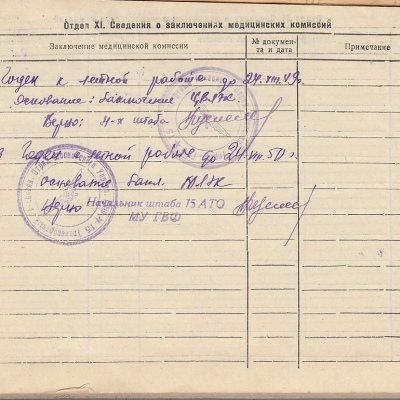 Отдел XI. Сведения о заключениях медицинских комиссий
Заключение медицинской комиссии
№ докумен-
та и дата
Примечание
Годен к летной работе до 24.VIII.49г.
Основание: заключение ЦВЛЭК.
Верно: н-к штаба
Годен к летной работе до 24.VII.50 г.
Основание закл. МЛЭК
Верно Начальник штаба 15 АТО
МУ ГВФ